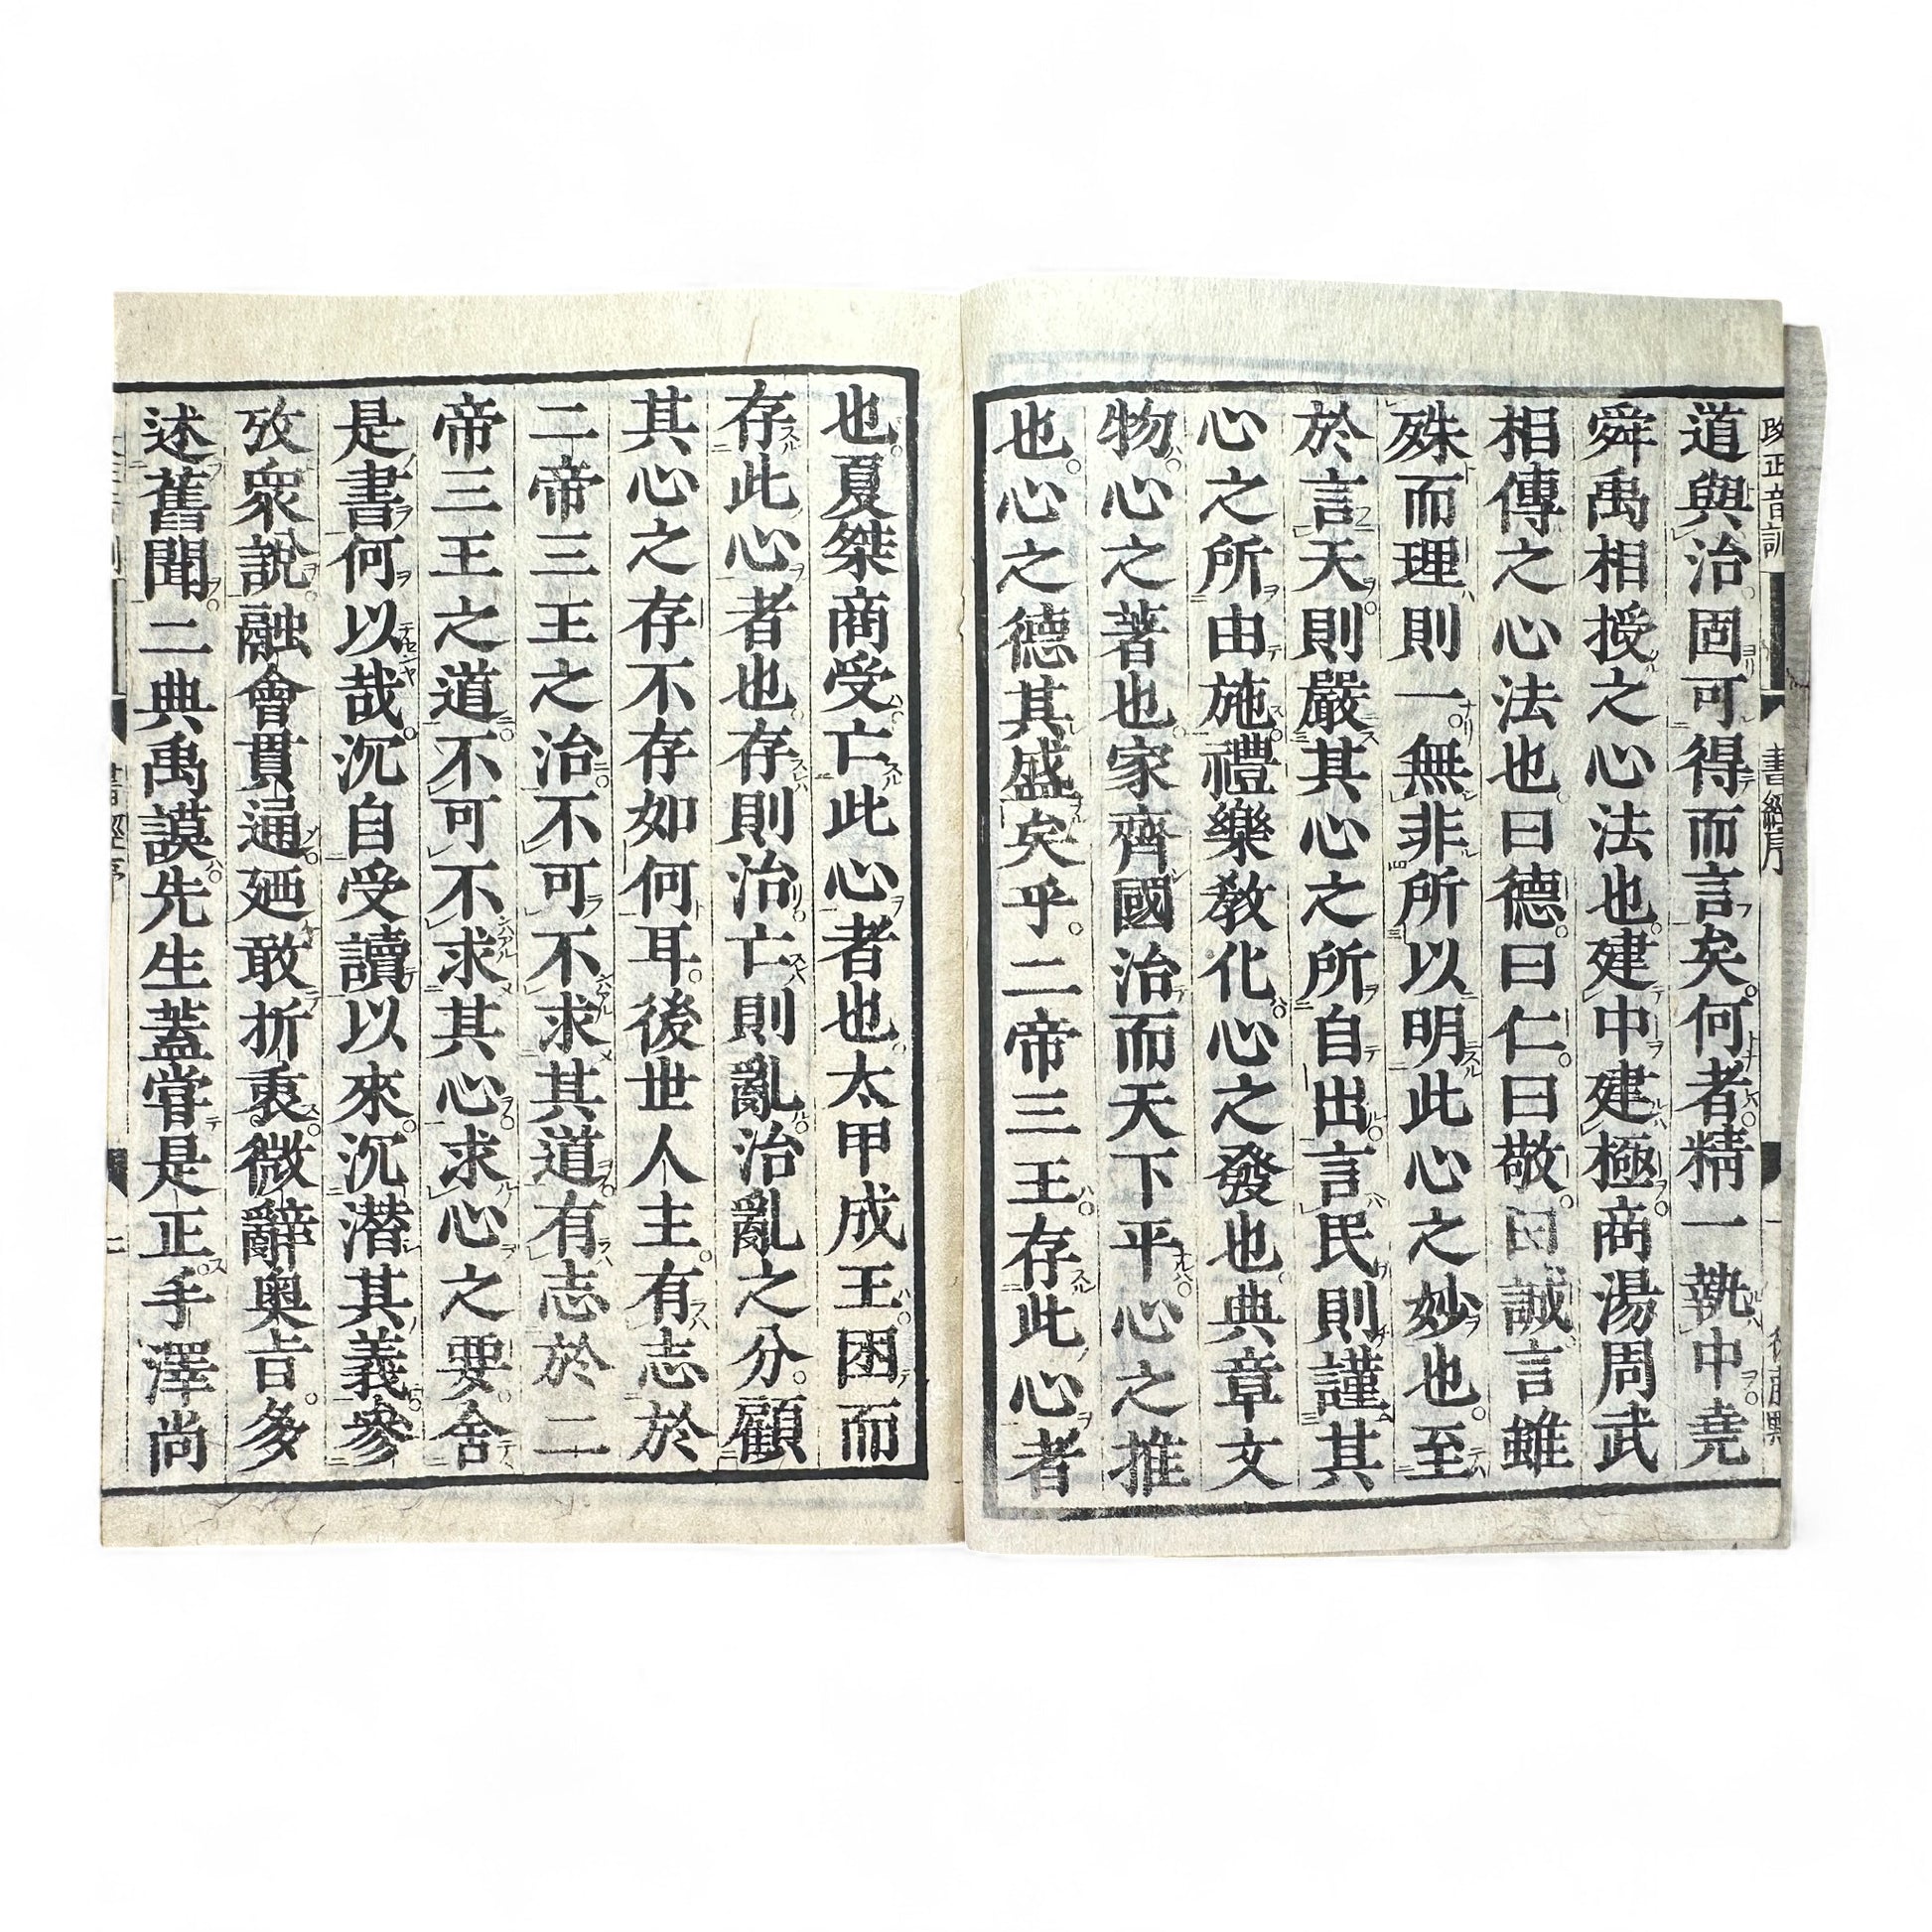 改正音訓 書經序 一
道與治。固可得而言矣。何者。精一執中。堯
舜禹相授之心法也。建中建極。商湯周武
相傳之心法也。曰德。曰仁。曰敬。曰誠。言雖
殊而理則一。無非所以明此心之妙也。至
於言天。則嚴其心之所自出。言民則謹其
心之所由施。禮樂敎化。心之發也。典章文
物。心之著也。家齊國治而天下平。心之推
也。心之德其盛矣乎。二帝三王。存此心者
也。夏桀商受。亡此心者也。太甲成王。困而
存此心者也。存則治。亡則亂。治亂之分。顧
其心之存不存如何耳。後世人主。有志於
二帝三王之治。不可不求其道。有志於二
帝三王之道。不可不求其心。求心之要。舍
是書何以哉。沉自受讀以來。沉潜其義。參
攷衆說。融會貫通。廼敢折衷。微辭奥㫖。多
述舊聞。二典禹謨。先生蓋甞是正。手澤尚